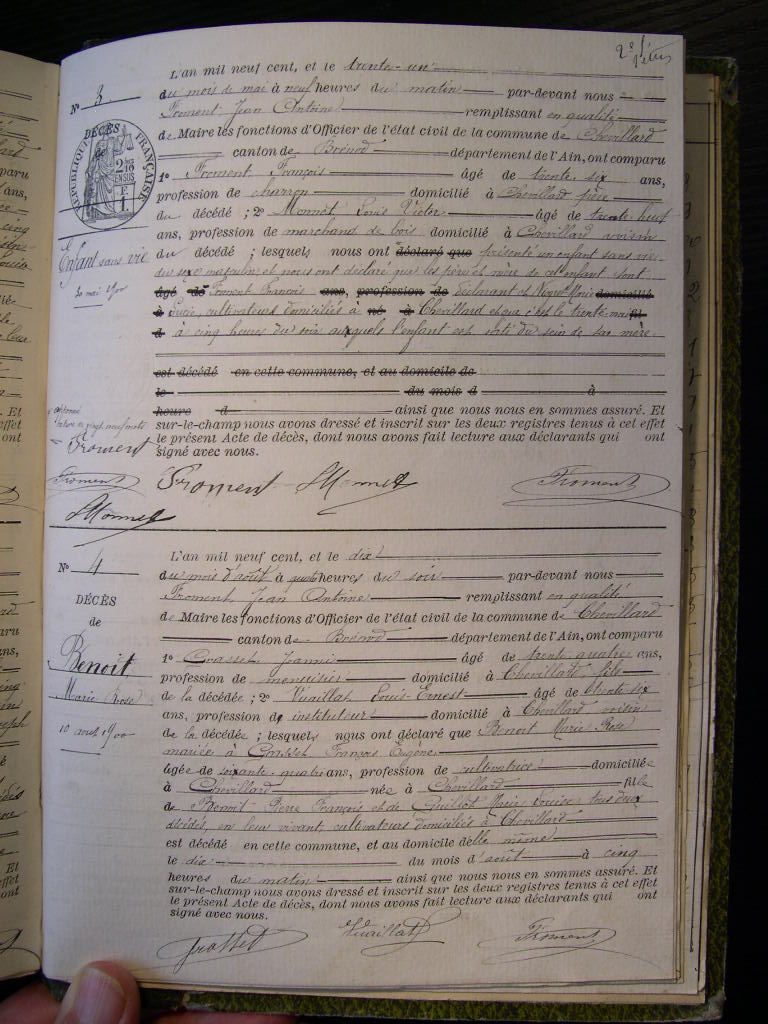 N° 3
DÉCÈS
de
RÉPUBLIQUE FRANÇAISE
Enfant sans vie
30 mai 1900
L'an mil neuf cent, et le trente-un
du mois de mai à neuf heures du matin par-devant nous
Froment Jean Antoine remplissant en qualité
de Maire les fonctions d'Officier de l'état civil de la commune de Chevillard
canton de Brénod département de l'Ain, ont comparu
1° Froment François âgé de trente six ans,
profession de charron domicilié à Chevillard père
du décédé ; 2° Monnet Louis Victor âgé de trente neuf
ans, profession de marchand de bois domicilié à Chevillard voisin
du décédé ; lesquels nous ont déclaré que présenté un enfant sans vie
du sexe masculin et nous ont déclaré que les père et mère de cet enfant sont
âgé de Froment François ans, profession de déclarant et Marie domicilié
à cultivateurs domiciliés à né à Chevillard et que c'est le trente mai fil
d à cinq heures du soir auxquels l'enfant est sorti du sein de sa mère
est décédé en cette commune, et au domicile de
le du mois d à
heure d ainsi que nous nous en sommes assuré. Et
sur-le-champ nous avons dressé et inscrit sur les deux registres tenus à cet effet
le présent Acte de décès, dont nous avons fait lecture aux déclarants qui ont
signé avec nous.
Froment
Froment LMonnet Froment
Froment
LMonnet
N° 4
DÉCÈS
de
Benoit
Marie Rose
10 août 1900
L'an mil neuf cent, et le dix
du mois d'août à quatre heures du soir par-devant nous
Froment Jean Antoine remplissant en qualité
de Maire les fonctions d'Officier de l'état civil de la commune de Chevillard
canton de Brénod département de l'Ain, ont comparu
1° Grasset Joannis âgé de trente quatre ans,
profession de menuisier domicilié à Chevillard fils
de la décédée ; 2° Vuaillat Louis-Ernest âgé de trente six
ans, profession d'instituteur domicilié à Chevillard voisin
de la décédée ; lesquels nous ont déclaré que Benoit Marie Rose
mariée à Grasset François Eugène
âgée de soixante-quatre ans, profession de cultivatrice domiciliée
à Chevillard née à Chevillard fille
de Benoit Pierre François et de Guillot Marie Louise tous deux
décédés, en leur vivant, cultivateurs domiciliés à Chevillard
est décédé en cette commune, et au domicile d'elle même
le dix du mois d'août à cinq
heures du matin ainsi que nous nous en sommes assuré. Et
sur-le-champ nous avons dressé et inscrit sur les deux registres tenus à cet effet
le présent Acte de décès, dont nous avons fait lecture aux déclarants qui ont
signé avec nous.
Grasset Vuaillat Froment